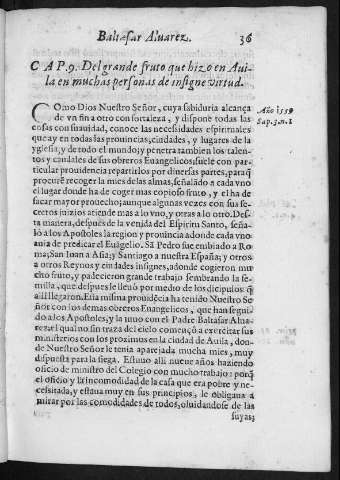 Baltasar Aluarez. 36
CAP. 9. Del grande fruto que hizo en Aui-
la en muchas personas de insigne virtud.
COmo Dios Nuestro Señor, cuya sabiduria alcança
de vn fin a otro con fortaleza, y dispone todas las
cosas con suauidad, conoce las necessidades espirituales
que ay en todas las prouincias, ciudades, y lugares de la
yglesia, y de todo el mundo; y penetra tambien los talen-
tos y caudales de sus obreros Euangelicos: suele con par-
ticular prouidencia repartirlos por diuersas partes, para q̃
procure recoger la mies de las almas, señalãdo a cada vno
el lugar donde ha de coger mas copioso fruto, y el ha de
sacar mayor prouecho; aunque algunas vezes con sus se-
cretos juizios atiende mas a lo vno, y otras a lo otro. Des-
ta manera, despues de la venida del Espiritu Santo, señaló
a los Apostoles la region y prouincia adonde cada vno
auia de predicar el Euãgelio. Sã Pedro fue embiado a Ro-
ma, San Iuan a Asia, y Santiago a nuestra España; y otros
a otros Reynos y ciudades insignes, adonde cogieron mu
cho fruto, y padecieron grande trabajo sembrando la se-
milla, que despues le lleuó por medio de los dicipulos q̃
alli llegaron. Esta misma prouidẽcia ha tenido Nuestro Se
ñor con los demas obreros Euangelicos, que han segui-
do a los Apostoles, y la tuuo con el Padre Baltasar Alua-
rez: el qual no sin traza del cielo començò a exercitar sus
ministerios con los proximos en la ciudad de Auila, don-
de Nuestro Señor le tenia aparejada mucha mies, muy
dispuesta para la siega. Estuuo alli nueue años haziendo
oficio de ministro del Colegio con mucho trabajo: porq̃
el oficio y la incomodidad de la casa que era pobre y ne-
cessitada, y estaua muy en sus principios, le obligaua a
mirar por las comodidades de todos, oluidandose de las
suyas;
Año 1559
Sap. 8. n. 1